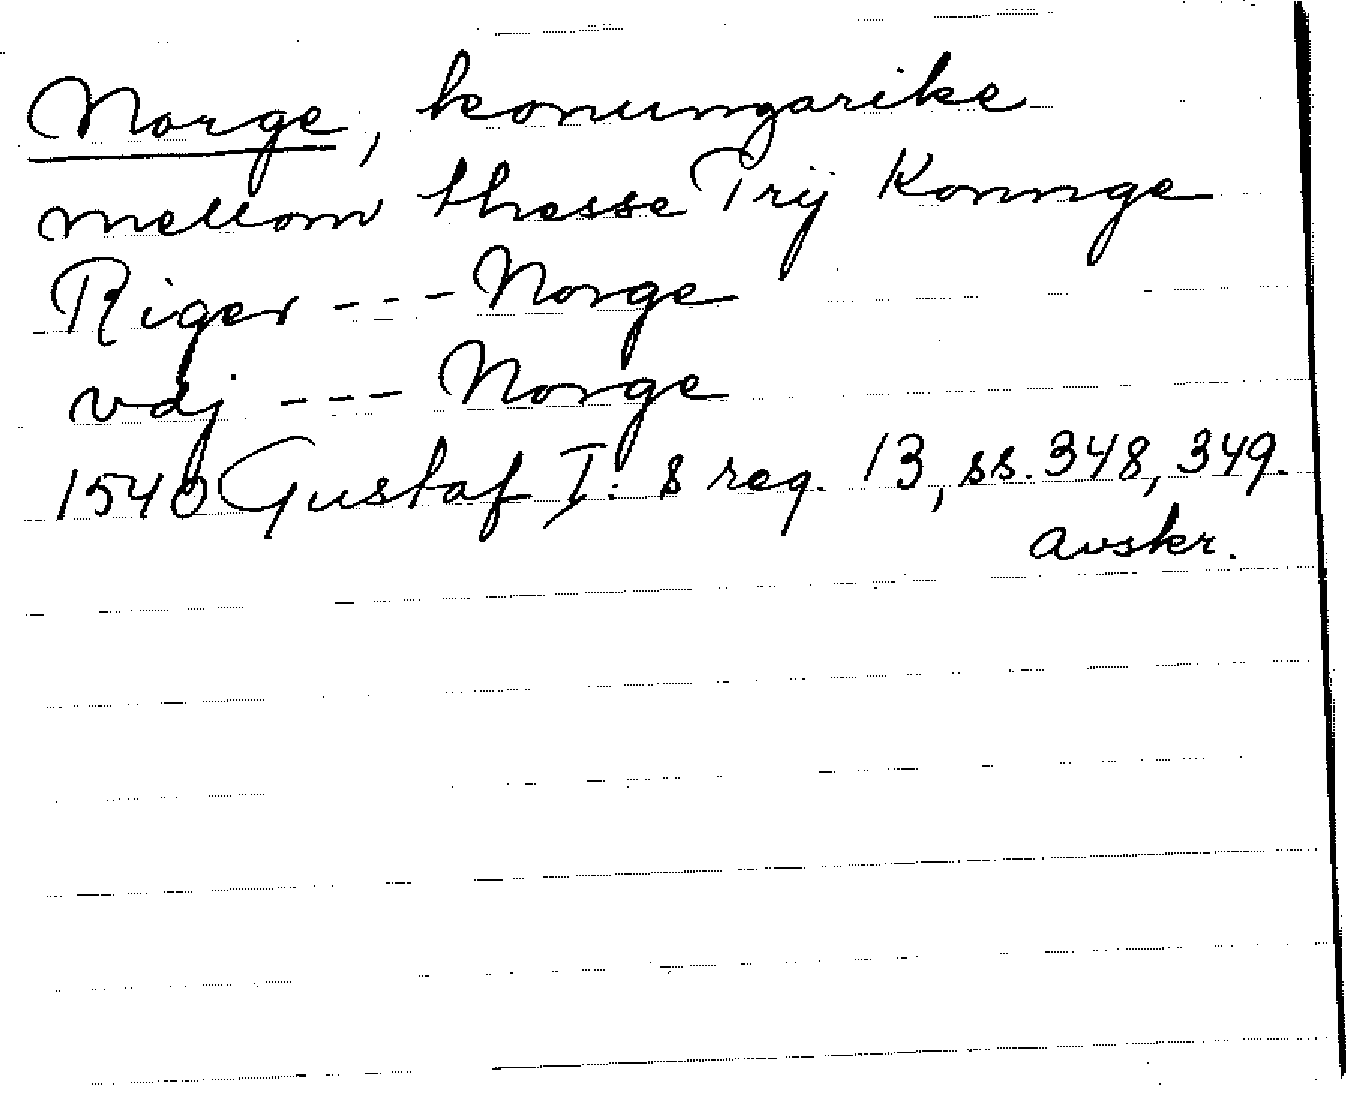 Norge, konungarike
mellom thesse Trij Konnge
Riger --- Norge
vdj --- Norge
1540 Gustaf I:s reg. 13, ss. 348, 349.
avskr.